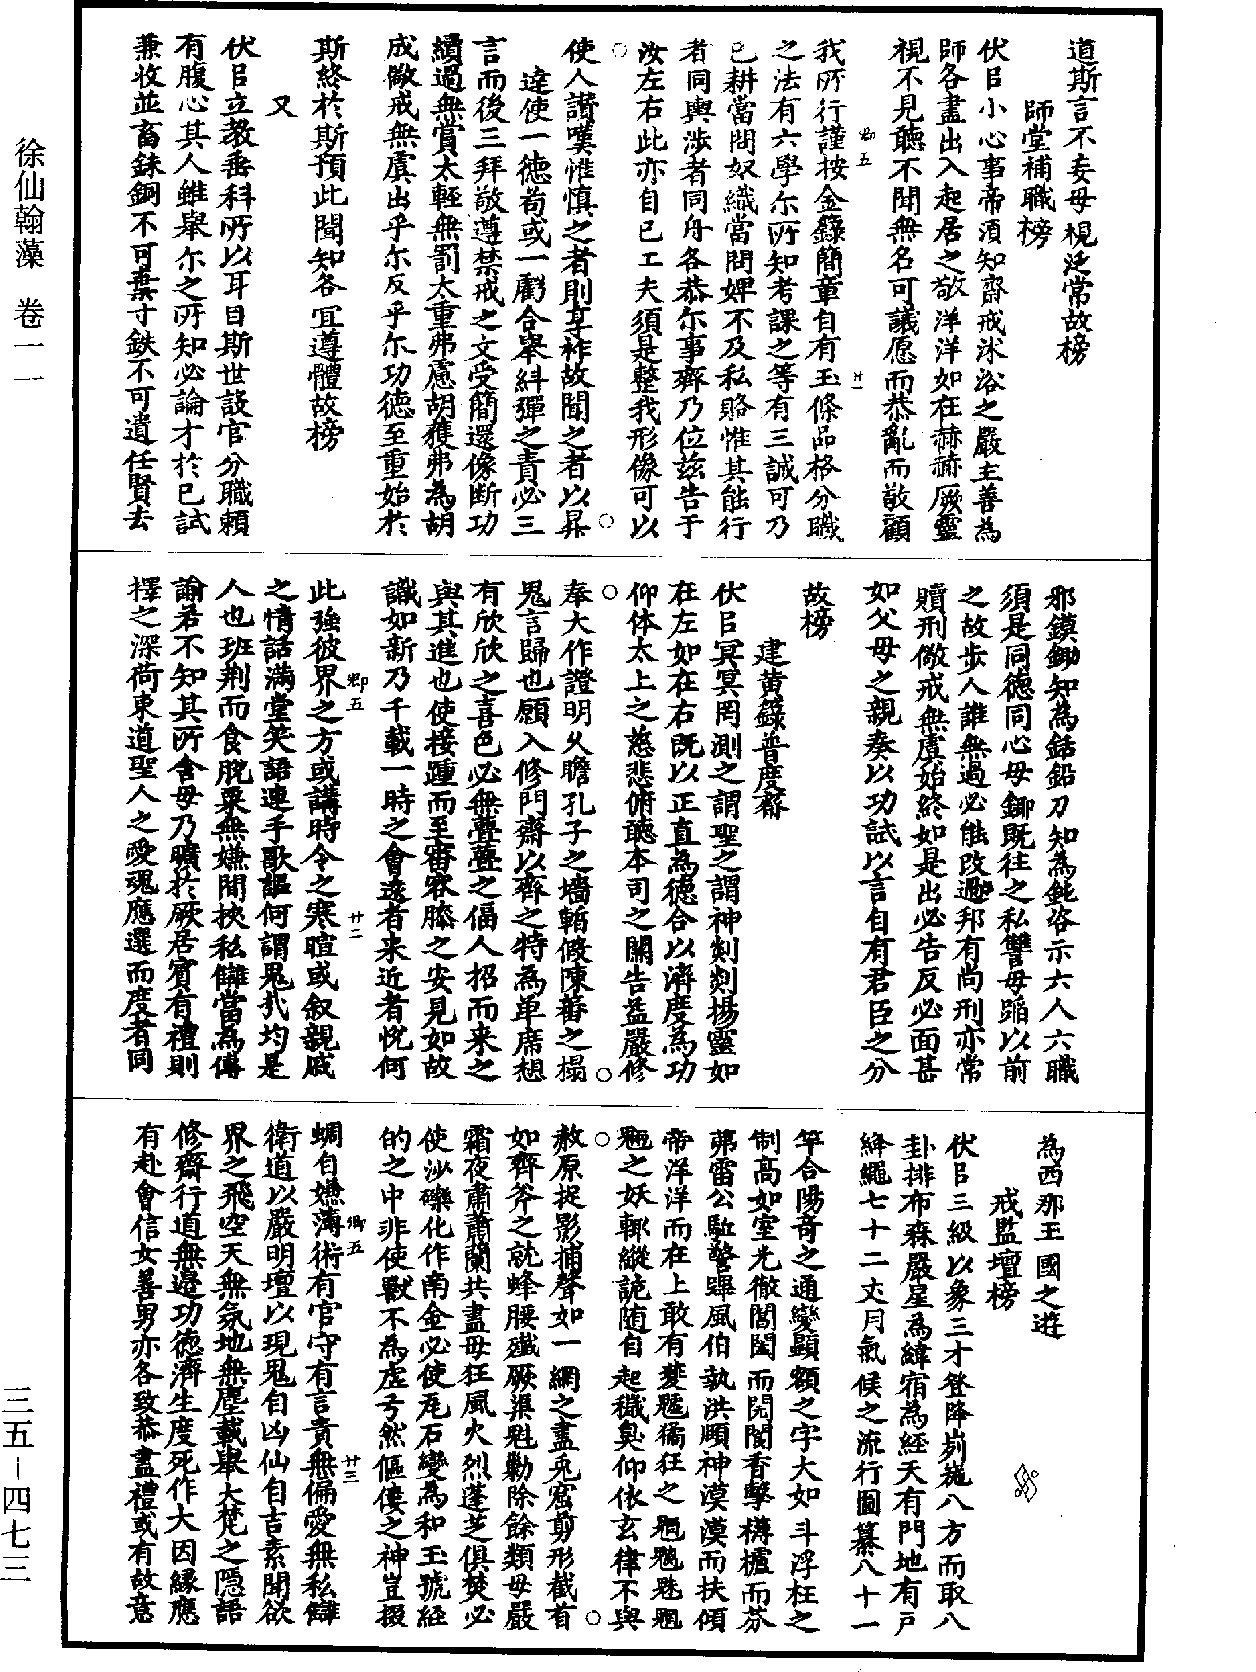 道斯言不妄毋視泛常故榜
師堂補職榜
伏㠯小心事帝須知齋戒沐浴之嚴主善為
師各盡出入起居之敬洋洋如在赫赫厥靈
視不見聽不聞無名可議愿而恭亂而敬顧
我所行謹按金籙簡章自有玉條品格分職
之法有六學尔所知考課之等有三誠可乃
已耕當問奴織當問婢不及私賂惟其能行
者同輿涉者同舟各恭尓事齊乃位兹告于
汝左右此亦自已工夫須是整我形像可以
使人讃嘆惟慎之者則享祚故聞之者以昇
違使一德苟或一虧合舉糾彈之責必三
言而後三拜敬遵禁戒之文受簡還像断功
績過無賞太輕無罰太重弗慮胡獲弗為胡
成儆戒無虞出乎尔反乎尔功德至重始於
斯終於斯預此聞知各宜遵體故榜
又
伏㠯立教垂科所以耳目斯世設官分職頼
有腹心其人雖舉尔之所知必論才於已試
兼收並畜銖銅不可棄寸鉄不可遺任賢去
邪鏌鋣知為銛鉛刀知為鈍咨示六人六職
須是同德同心毋鋤既往之私讐毋蹈以前
之故步人誰無過必能改過邦有尚刑亦常
贖刑儆戒無虞始終如是出必告反必面甚
如父母之親奏以功試以言自有君臣之分
故榜
建黄籙普度齋
伏㠯冥冥罔測之謂聖之謂神剡剡揚靈如
在左如在右既以正直為德合以濟度為功
仰体太上之慈悲俯聽本司之關告益嚴修
奉大作證明乆瞻孔子之墻暫假陳蕃之榻
鬼言歸也願入修門齋以齊之特為单席想
有欣欣之喜色必無疊疊之傴人招而来之
與其進也使接踵而至審容膝之安見如故
識如新乃千載一時之會遠者来近者悅何
此強彼界之方或講時令之寒暄或叙親戚
之情話滿堂笑語連手歌謳何謂鬼㢤均是
人也班荆而食脫粟無嫌閒挾私讎當為傳
諭君不知其所舍毋乃曠於厥居賓有禮則
擇之深荷東道聖人之愛魂應選而度者同
為西那玉國之遊
戒監壇榜
伏㠯三級以象三才登降峛崺八方而取八
卦排布森嚴星為緯宿為經天有門地有戸
絳繩七十二丈月氣候之流行圖纂八十一
竿合陽竒之通變顯額之字大如斗浮柱之
制高如室光徹閶闔而閱閬香擊欂櫨而芬
茀雷公駈警蹕風伯執洪頥神漠漠而扶傾
帝洋洋而在上敢有夔魖獝狂之魍魎魃魈
魅之妖輙縱詭随自起穢臭仰依玄律不與
赦原捉影捕聲如一網之盡兎窟剪形截首
如齊斧之就蜂腰殲厥渠魁勦除餘類毋嚴
霜夜肅蕭蘭共盡毋狂風火烈蓬芝俱焚必
使沙礫化作南金必使瓦石變為和玉號經
的之中非使獸不為虚亏然傴僂之神豈掇
蜩自嫌薄術有官守有言責無偏愛無私讎
衛道以嚴明壇以現鬼自凶仙自吉素聞欲
界之飛空天無氛地無塵載舉大梵之隱語
修齋行道無邉功德濟生度死作大因縁應
有赴會信女善男亦各致恭盡禮或有故意
卿五
廿一
卿五
廿二
卿五
廿三
徐仙翰藻 卷一一
三五－四七三